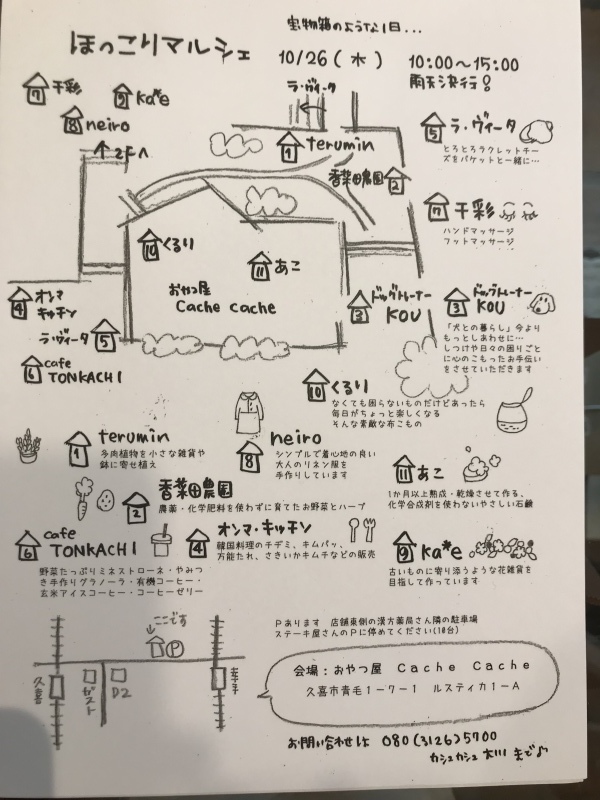 宝物箱のような1日...
ほっこりマルシェ
10/26(水)
10:00～15:00
雨天決行!
7 千彩
9 Ka*e
8 neiro
↑2Fへ
ラ・ヴィータ
1 terumin
香菜田農園 2
5 ラ・ヴィータ
とろとろラクレットチー
ズをバケットと一緒に…
7 千彩
ハンドマッサージ
フットマッサージ
10 くるり
11 あこ
おやつ屋
Cache cache
4 オンマ
キッチン
ラ・ヴィータ 5
6 cafe
TONKACHI
3 ドッグトレーナー
KOU
3 ドッグトレーナー
KOU
「犬との暮らし」今より
もっとしあわせに…
しつけや日々の困りごと
に心のこもったお手伝い
をさせていただきます
10 くるり
なくても困らないものだけどあったら
毎日がちょっと楽しくなる
そんな素敵な布こもの
1 terumin
多肉植物を小さな雑貨や
鉢に寄せ植え
8 neiro
シンプルで着心地の良い
大人のリネン服を
手作りしています
11 あこ
1か月以上熟成・乾燥させて作る、
化学合成剤を使わないやさしい石鹸
2 香菜田農園
農薬・化学肥料を使わずに育てたお野菜とハーブ
6 cafe
TONKACHI
野菜たっぷりミネストローネ・やみつ
き手作りグラノーラ・有機コーヒー・
玄米アイスコーヒー・コーヒーゼリー
4 オンマ・キッチン
韓国料理のチヂミ、キムパッ、
万能たれ、さきいかキムチなどの販売
9 Ka*e
古いものに寄り添うような花雑貨を
目指して作っています
ここです
P
久喜
ゼスト
D2
幸手
Pあります 店舗東側の漢方薬局さん隣の駐車場
ステーキ屋さんのPに停めてください(10台)
会場：おやつ屋 Cache Cache
久喜市青毛1－7－1 ルスティカ1－A
お問い合わせは 080(3126)5700
カシュカシュ 大川 まで♪